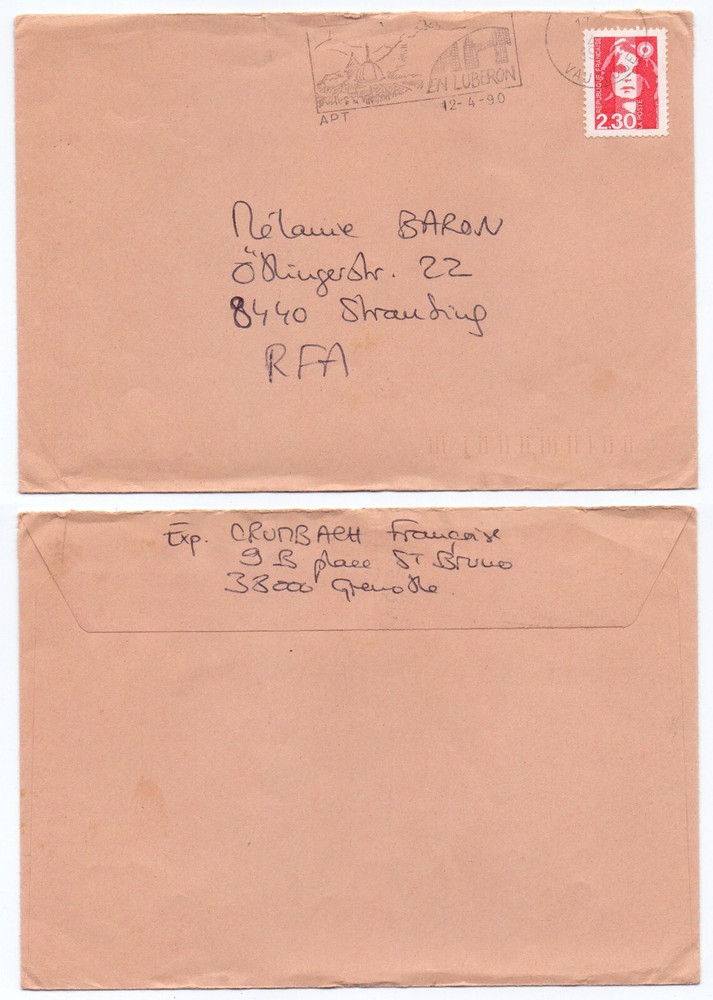 APT
EN LUBERON
12-4-90
APT
REPUBLIQUE FRANÇAISE
LA POSTE
2,30
Mélanie BARON
Öttlingerstr. 22
8440 Straubing
RFA
Exp. CRUMBACH Françoise
9 B place St Bruno
38000 Grenoble.